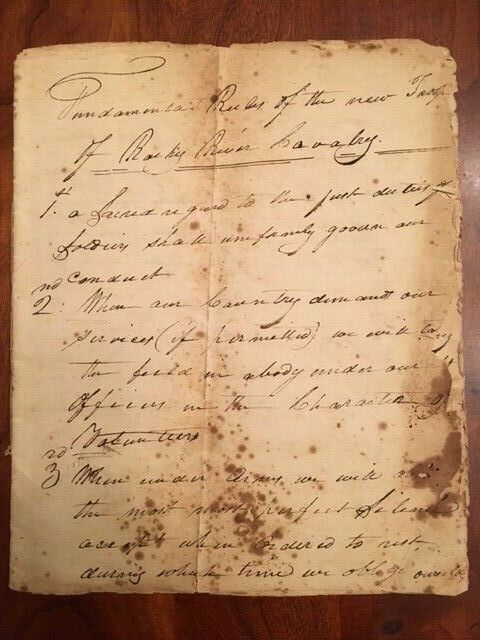 Fundamental Rules of the new Troop
Of Rocky River Cavalry.
1st. a Sacred regard to the just duties of
Soldiers shall uniformly govern our
Conduct
2nd: When our Country demands our
services (if permitted) we will take
the field in a body under our
Officers in the Character of
Volunteers
3rd When under Arms we will
the most most perfect Silence
accept when ordered to rest
during which time we oblige ourselves